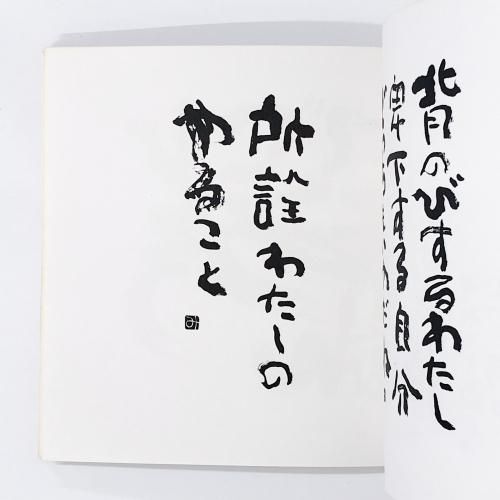 背のびするわたし
卑下する自分
所詮わたしの
やること
み